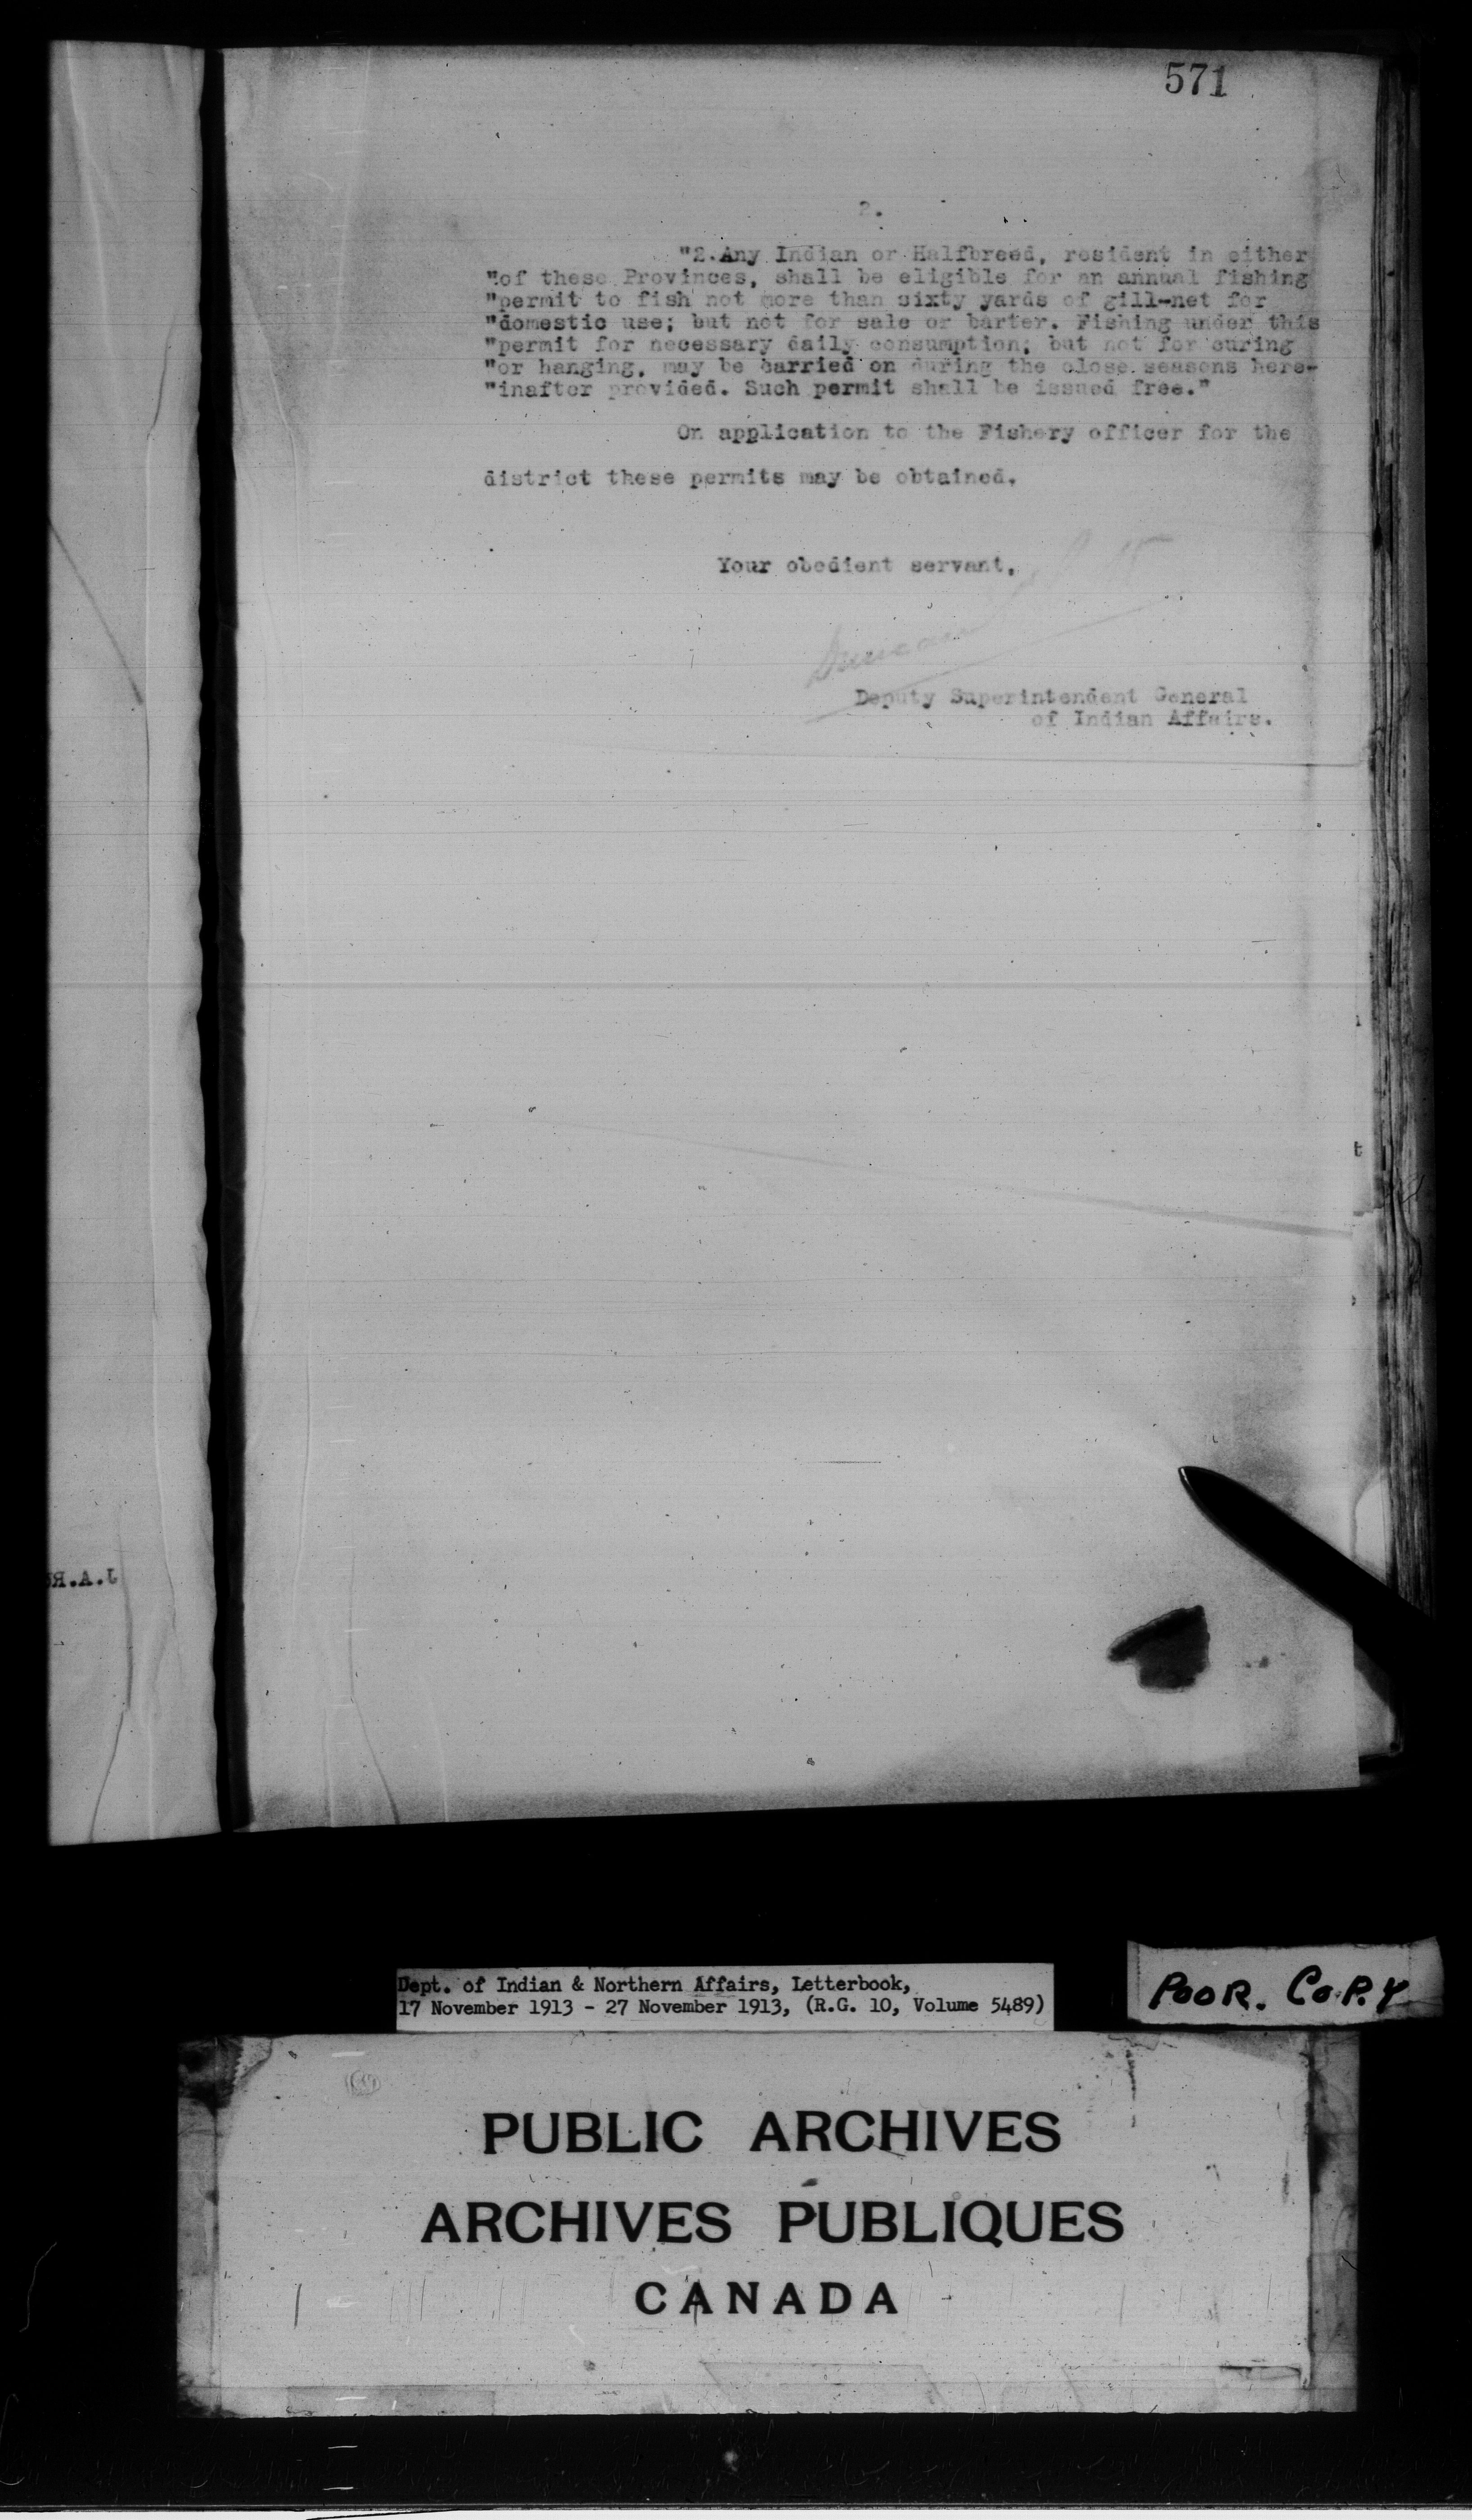 571
2.
"2.Any Indian or Halfbreed, resident in either
"of these Provinces, shall be eligible for an annual fishing
"permit to fish not more than sixty yards of gill-net for
"domestic use; but not for sale or barter. Fishing under this
"permit for necessary daily consumption; but not for curing
"or hanging, may be carried on during the close seasons here-
"inafter provided. Such permit shall be issued free."
On application to the Fishery officer for the
district these permits may be obtained.
Your obedient servant,
Duncan Scott
Deputy Superintendent General
of Indian Affairs.
J.A.R
Dept. of Indian & Northern Affairs, Letterbook,
17 November 1913 - 27 November 1913, (R.G. 10, Volume 5489)
POOR. COPY
PUBLIC ARCHIVES
ARCHIVES PUBLIQUES
CANADA